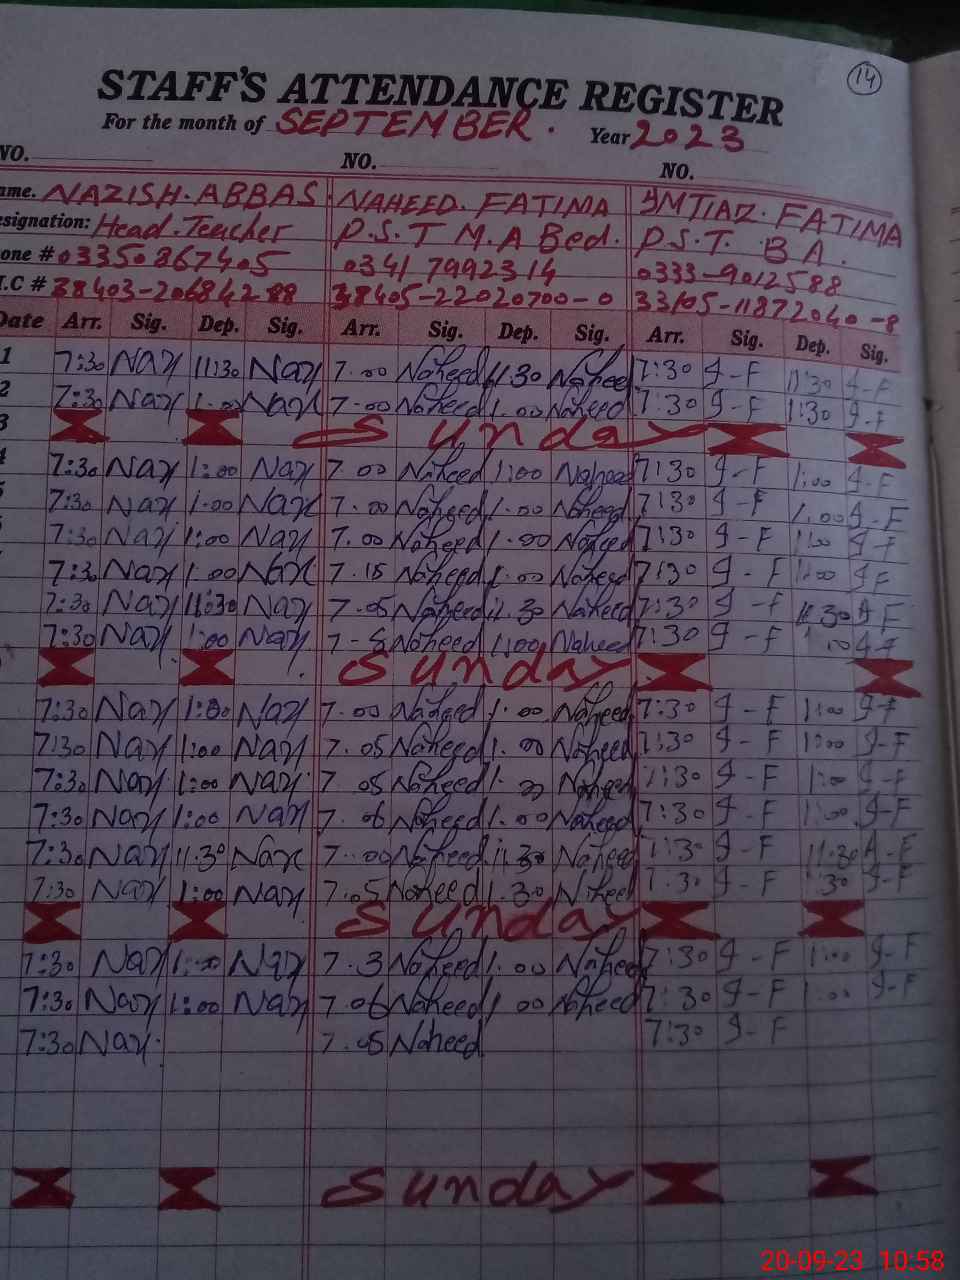 14
STAFF'S ATTENDANCE REGISTER
For the month of SEPTEMBER. Year 2023
NO. NO. NO.
ame. NAZISH.ABBAS NAHEED. FATIMA YMTIAZ. FATIMA
esignation: Head.Teacher P.S.T M.A Bed. P.S.T. B A.
one # 03350867405 0341 7992314 0333-9012588
I.C # 38403-2068428 88405-22020700-0 33105-11872040-8
Date Arr. Sig. Dep. Sig. Arr. Sig. Dep. Sig. Arr. Sig. Dep. Sig.
1 7:30 Naz 11:30 Naz 7.00 Naheed 11.30 Naheed 7:30 I-F 11:30 I-F
2 7:30 Naz 1:00 Naz 7-00 Naheed 1.00 Naheed 7:30 I-F 1:30 I-F
3 Sunday
4 7:30 Naz 1:00 Naz 7.00 Naheed 1:00 Naheed 7:30 I-F 1:00 I-F
5 7:30 Naz 1.00 Naz 7.00 Naheed 1.00 Naheed 7:30 I-F 1.00 I-F
7:30 Naz 1:00 Naz 7.00 Naheed 1.00 Naheed 7:30 I-F 1:00 I-F
7:30 Naz 1:00 Naz 7.15 Naheed 1.00 Naheed 7:30 I-F 1:00 I-F
7:30 Naz 11:30 Naz 7.05 Naheed 11.30 Naheed 7:30 I-F 11:30 I-F
7:30 Naz 1:00 Naz Naheed 1:00 Naheed 7:30 I-F 1:00 I-F
Sunday
7:30 Naz 1:00 Naz 7.00 Naheed 1.00 Naheed 7:30 I-F 1:00 I-F
7:30 Naz 1:00 Naz 7.05 Naheed 1.00 Naheed 7:30 I-F 1:00 I-F
7:30 Naz 1:00 Naz 7.05 Naheed 1.00 Naheed 7:30 I-F 1:00 I-F
7:30 Naz 1:00 Naz 7.06 Naheed 1.00 Naheed 7:30 I-F 1:00 I-F
7:30 Naz 11:30 Naz 7.00 Naheed 11.30 Naheed 7:30 I-F 11:30 I-F
7:30 Naz 1:00 Naz 7.05 Naheed 1.30 Naheed 7:30 I-F 1:30 I-F
Sunday
7:30 Naz 1:00 Naz 7.3 Naheed 1.00 Naheed 7:30 I-F 1:00 I-F
7:30 Naz 1:00 Naz 7.06 Naheed 1.00 Naheed 7:30 I-F 1:00 I-F
7:30 Naz. 7.05 Naheed 7:30 I-F
Sunday
20-09-23 10:58